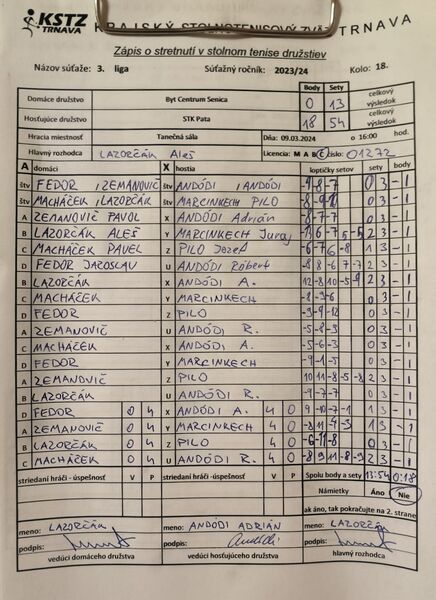 KSTZ TRNAVA KRAJSKÝ STOLNOTENISOVÝ ZVÄZ TRNAVA
Zápis o stretnutí v stolnom tenise družstiev
Názov súťaže: 3. liga Súťažný ročník: 2023/24 Kolo: 18.
Body Sety
Domáce družstvo Byt Centrum Senica 0 13 celkový výsledok
Hosťujúce družstvo STK Pata 18 54 celkový výsledok
Hracia miestnosť Tanečná sála Dňa: 09.03.2024 o 16:00 hod.
Hlavný rozhodca LAZORČÁK Aleš Licencia: M A B C číslo: 01272
A domáci X hostia loptičky setov sety body
štv FEDOR, ZEMANOVIČ štv ANDÓDI, ANDÓDI -9 -8 -7 0 3 - 1
štv MACHÁČEK, LAZORČÁK štv MARCINKECH PILO 0 3 - 1
A ZEMANOVIČ PAVOL X ANDÓDI Adrián -8 -7 -7 0 3 - 1
B LAZORČÁK ALEŠ Y MARCINKECH Juraj 2 3 - 1
C MACHÁČEK PAVEL Z PILO Jozef -6 -7 6 -8 1 3 - 1
D FEDOR JAROSLAV U ANDÓDI Róbert 2 3 - 1
B LAZORČÁK X ANDÓDI A. 2 3 - 1
C MACHÁČEK Y MARCINKECH -8 -3 -6 0 3 - 1
D FEDOR Z PILO -3 -9 -12 0 3 - 1
A ZEMANOVIČ U ANDÓDI R. -5 -8 -3 0 3 - 1
C MACHÁČEK X ANDÓDI A. -5 -6 -3 0 3 - 1
D FEDOR Y MARCINKECH -9 -1 -5 0 3 - 1
A ZEMANOVIČ Z PILO 10 11 -8 -5 -8 2 3 - 1
B LAZORČÁK U ANDÓDI R. -9 -7 -7 0 3 - 1
D FEDOR 0 4 X ANDÓDI A. 4 0 9 -10 -7 -1 1 3 - 1
A ZEMANOVIČ 0 4 Y MARCINKECH 4 0 -8 11 -4 -3 1 3 - 1
B LAZORČÁK 0 4 Z PILO 4 0 -6 -11 -8 0 3 - 1
C MACHÁČEK 0 4 U ANDÓDI R. 4 0 2 3 - 1
striedaní hráči - úspešnosť V P striedaní hráči - úspešnosť V P Spolu body a sety 13:54 0:18
Námietky Áno Nie
ak áno, tak pokračujte na 2. strane
meno: LAZORČÁK meno: ANDÓDI ADRIÁN meno: LAZORČÁK
podpis: podpis: podpis:
vedúci domáceho družstva vedúci hosťujúceho družstva hlavný rozhodca